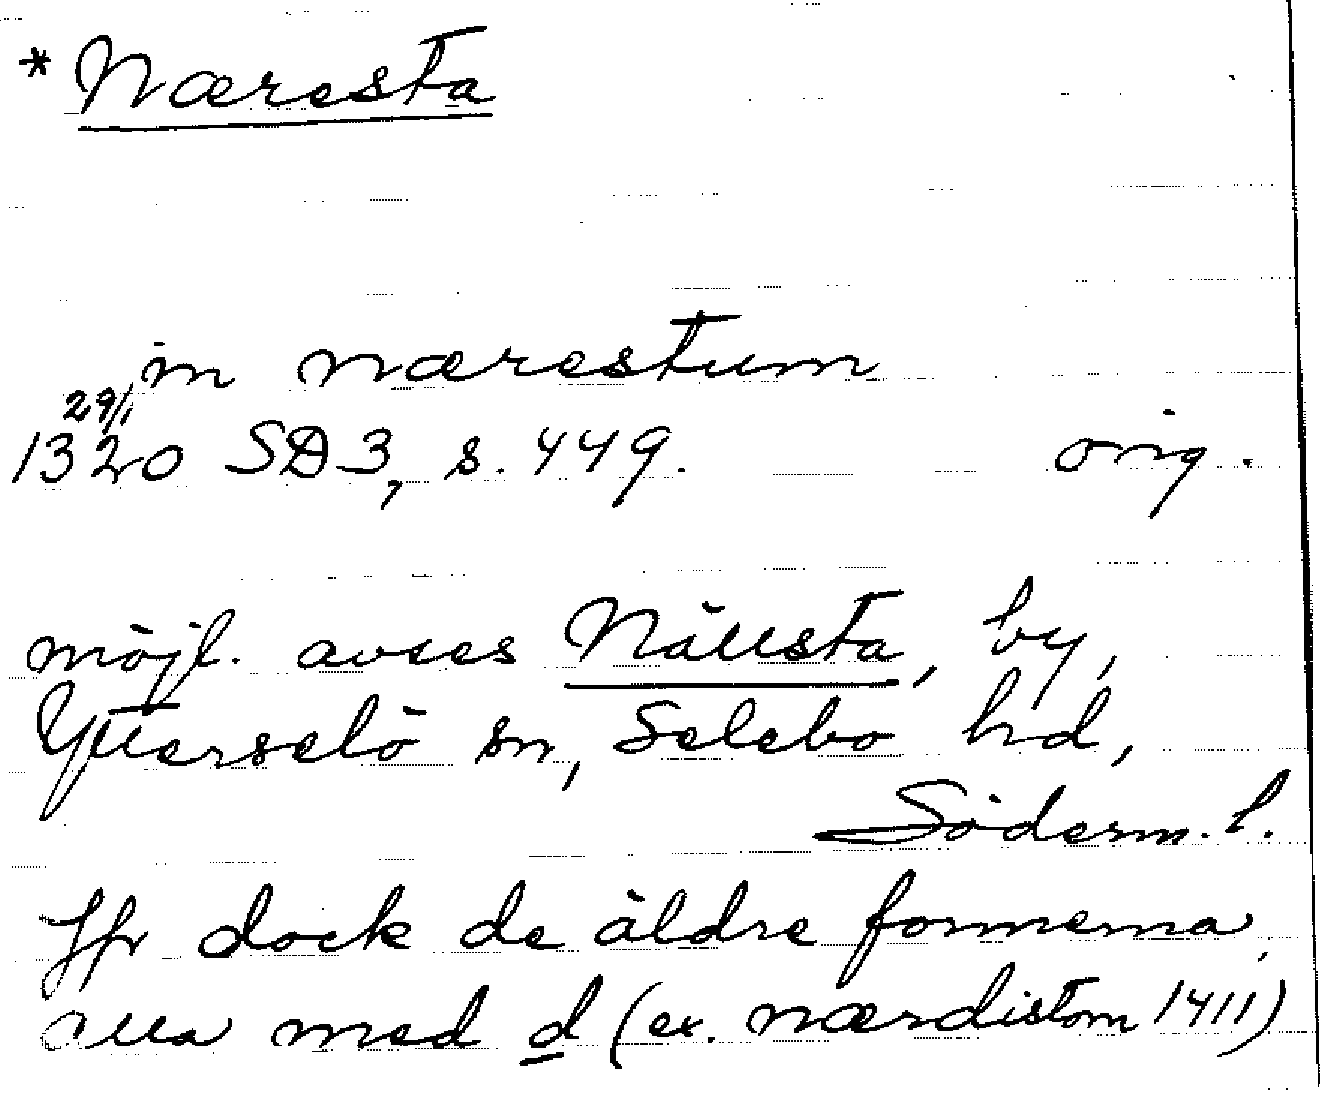 * Næresta
in nærestum
29/1
1320 SD 3, s. 449. orig.
möjl. avses Nällsta, by,
Ytterselö sn, Selebo hd,
Söderm. l.
Jfr dock de äldre formerna,
alla med d (ex. nærdistom 1411)